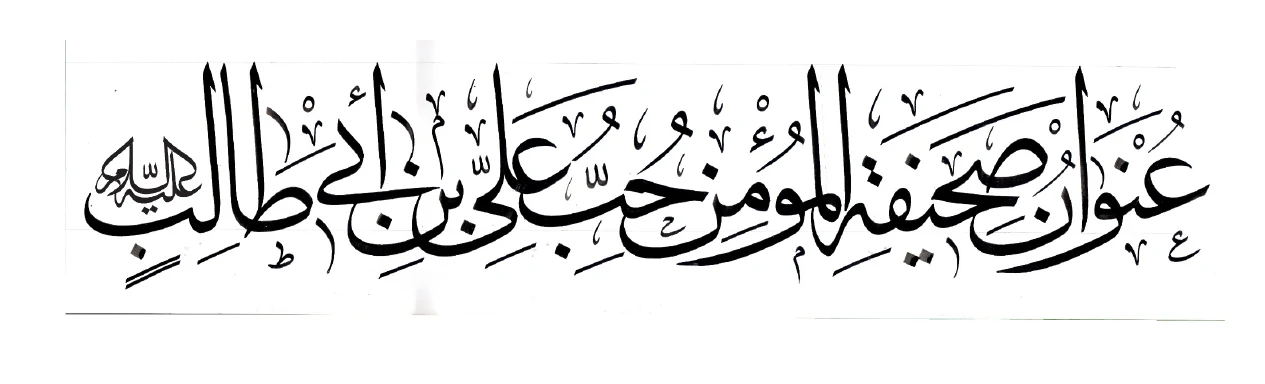 عُنْوَانُ صَحِيفَةِ الْمُؤْمِنِ حُبُّ عَلِيِّ بْنِ أَبِي طَالِبٍ عليه السلام